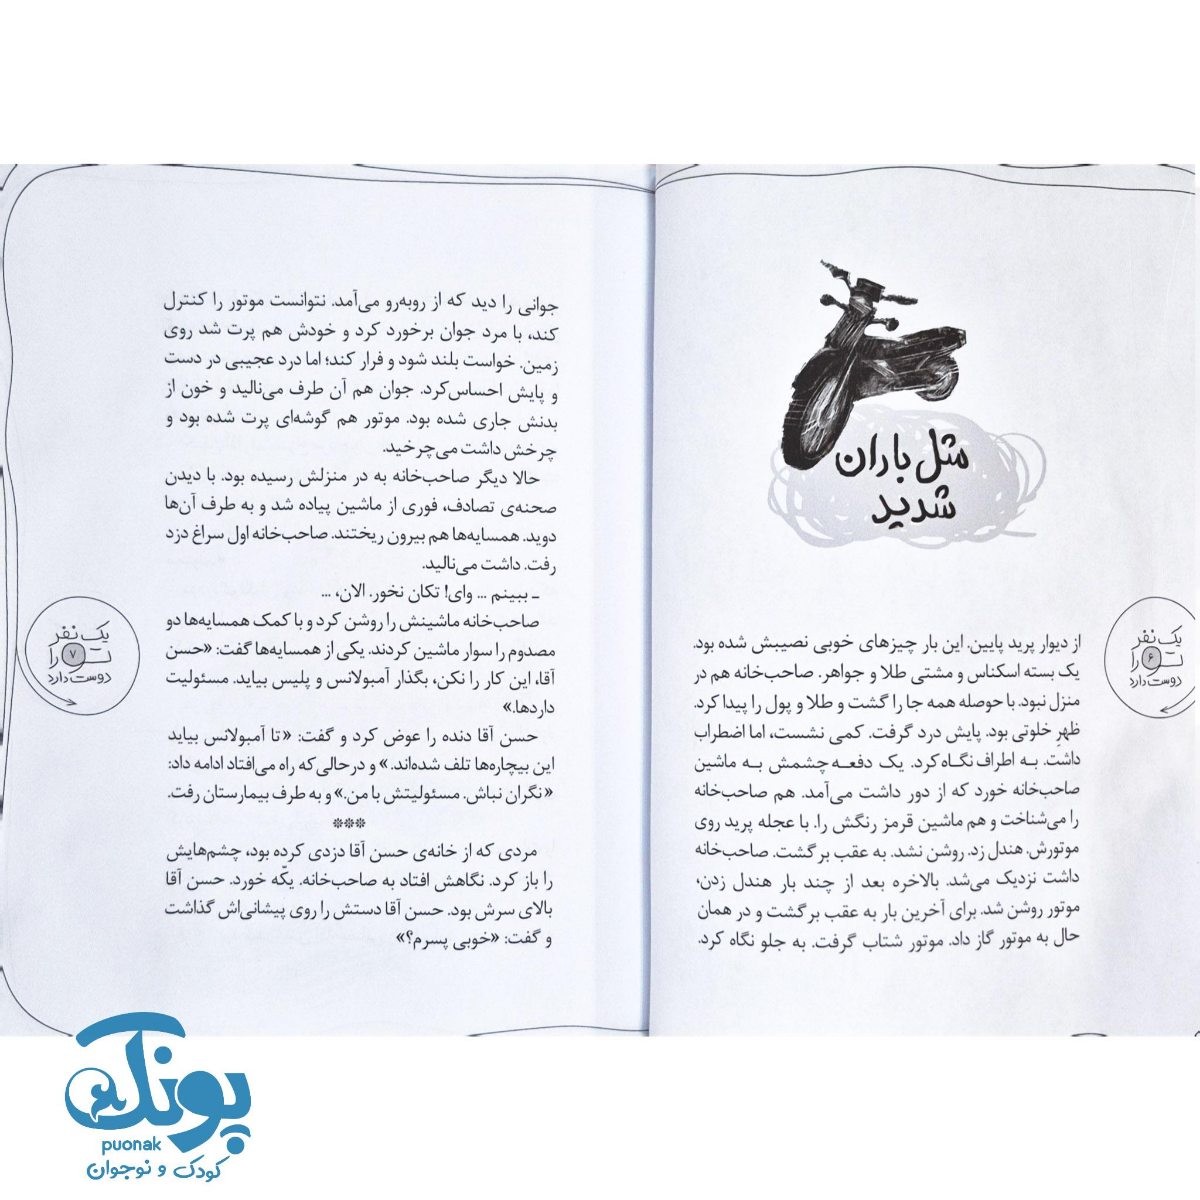 مثل باران
شدید
از دیوار پرید پایین. این بار چیزهای خوبی نصیبش شده بود.
یک بسته اسکناس و مشتی طلا و جواهر. صاحب‌خانه هم در
منزل نبود. با حوصله همه جا را گشت و طلا و پول را پیدا کرد.
ظهرِ خلوتی بود. پایش درد گرفت. کمی نشست، اما اضطراب
داشت. به اطراف نگاه کرد. یک دفعه چشمش به ماشین
صاحب‌خانه خورد که از دور داشت می‌آمد. هم صاحب‌خانه
را می‌شناخت و هم ماشین قرمز رنگش را. با عجله پرید روی
موتورش. هندل زد. روشن نشد. به عقب برگشت. صاحب‌خانه
داشت نزدیک می‌شد. بالاخره بعد از چند بار هندل زدن،
موتور روشن شد. برای آخرین بار به عقب برگشت و در همان
حال به موتور گاز داد. موتور شتاب گرفت. به جلو نگاه کرد.
یک نفر
تو را
۶
دوست دارد
جوانی را دید که از روبه‌رو می‌آمد. نتوانست موتور را کنترل
کند، با مرد جوان برخورد کرد و خودش هم پرت شد روی
زمین. خواست بلند شود و فرار کند؛ اما درد عجیبی در دست
و پایش احساس‌کرد. جوان هم آن طرف می‌نالید و خون از
بدنش جاری شده بود. موتور هم گوشه‌ای پرت شده بود و
چرخش داشت می‌چرخید.
حالا دیگر صاحب‌خانه به در منزلش رسیده بود. با دیدن
صحنه‌ی تصادف، فوری از ماشین پیاده شد و به طرف آن‌ها
دوید. همسایه‌ها هم بیرون ریختند. صاحب‌خانه اول سراغ دزد
رفت. داشت می‌نالید.
ـ ببینم ... وای! تکان نخور. الان، ...
صاحب‌خانه ماشینش را روشن کرد و با کمک همسایه‌ها دو
مصدوم را سوار ماشین کردند. یکی از همسایه‌ها گفت: «حسن
آقا، این کار را نکن، بگذار آمبولانس و پلیس بیاید. مسئولیت
داردها.»
حسن آقا دنده را عوض کرد و گفت: «تا آمبولانس بیاید
این بیچاره‌ها تلف شده‌اند.» و در حالی‌که راه می‌افتاد ادامه داد:
«نگران نباش. مسئولیتش با من.» و به طرف بیمارستان رفت.
***
مردی که از خانه‌ی حسن آقا دزدی کرده بود، چشم‌هایش
را باز کرد. نگاهش افتاد به صاحب‌خانه. یکّه خورد. حسن آقا
بالای سرش بود. حسن آقا دستش را روی پیشانی‌اش گذاشت
و گفت: «خوبی پسرم؟»
یک نفر
تو را
۷
دوست دارد
پونک
puonak
کودک و نوجوان